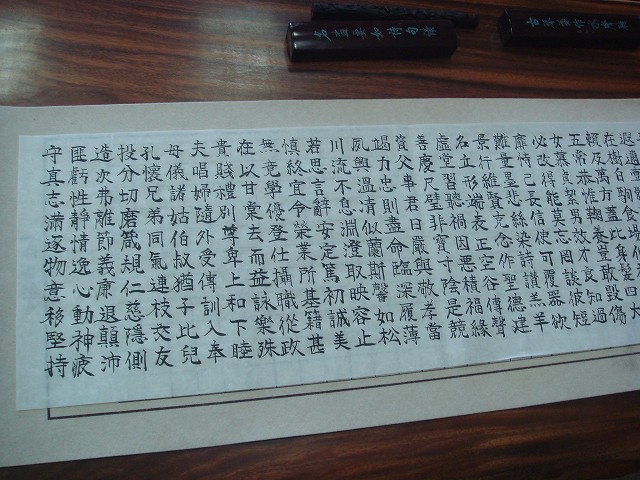 遐邇壹體
在樹白駒食場
賴及萬方蓋此身髮四大
五常恭惟鞠養豈敢毀傷
女慕貞絜男效才良知過
必改得能莫忘罔談彼短
靡恃己長信使可覆器欲
難量墨悲絲染詩讚羔羊
景行維賢克念作聖德建
名立形端表正空谷傳聲
虛堂習聽禍因惡積福緣
善慶尺璧非寶寸陰是競
資父事君曰嚴與敬孝當
竭力忠則盡命臨深履薄
夙興溫凊似蘭斯馨如松
川流不息淵澄取映容止
若思言辭安定篤初誠美
慎終宜令榮業所基籍甚
無竟學優登仕攝職從政
在以甘棠去而益詠樂殊
貴賤禮別尊卑上和下睦
夫唱婦隨外受傅訓入奉
母儀諸姑伯叔猶子比兒
孔懷兄弟同氣連枝交友
投分切磨箴規仁慈隱惻
造次弗離節義廉退顛沛
匪虧性靜情逸心動神疲
守真志滿逐物意移堅持